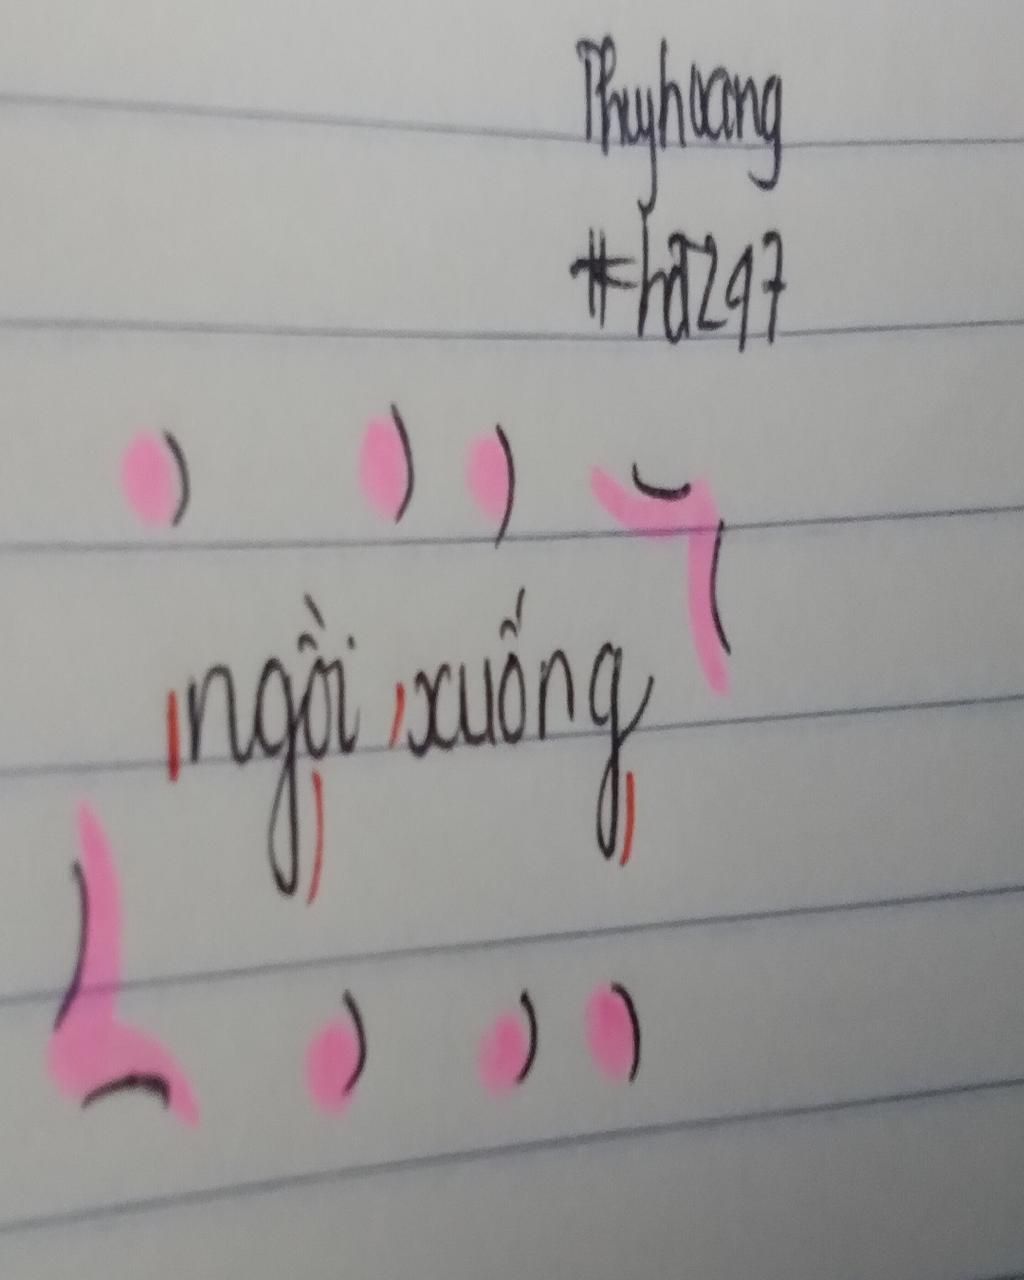 Thuyhuong
#hd297
ngồi xuống